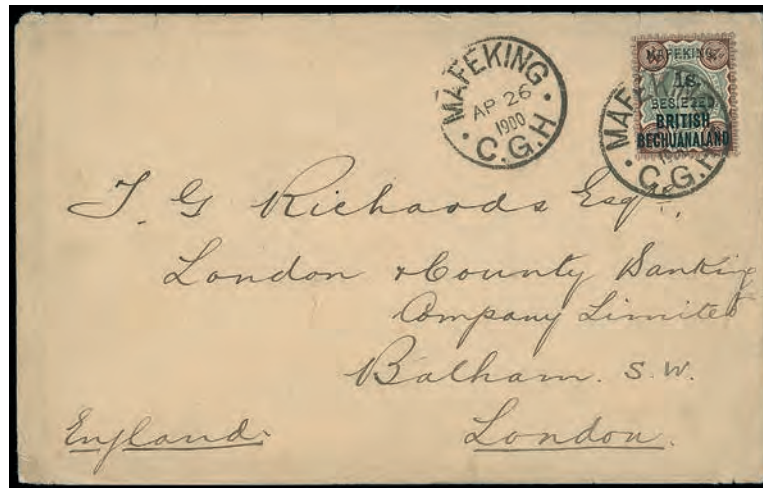 MAFEKING
AP 26
1900
C.G.H
MAFEKING
1s.
BESIEGED
BRITISH
BECHUANALAND
MAFEKING
1900
C.G.H
J. G Richards Esqre.,
London & County Banking
Company Limited
Balham. S.W.
England. London.